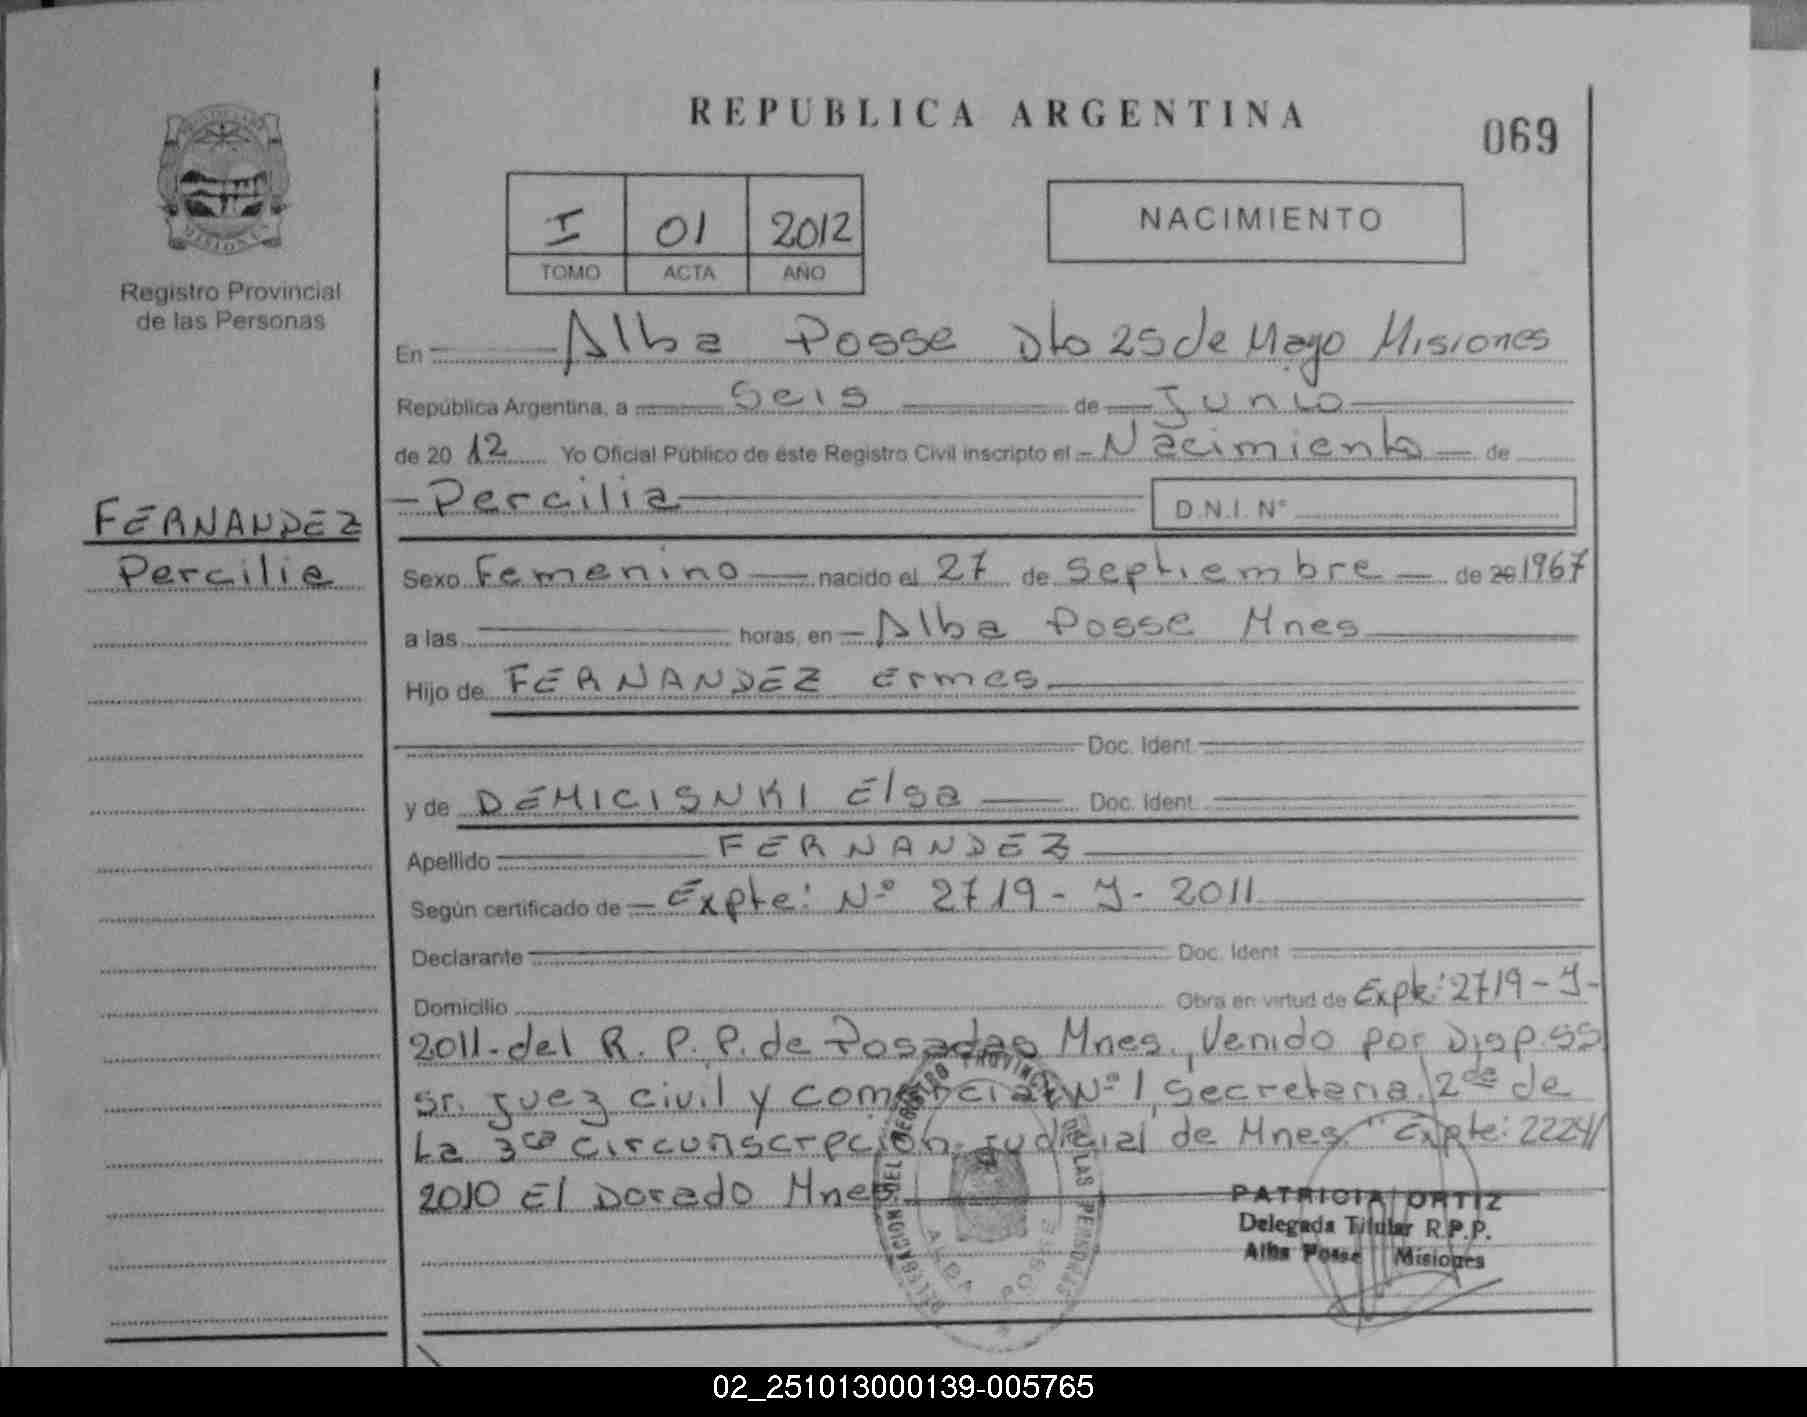 REPUBLICA ARGENTINA
069
I 01 2012
TOMO ACTA AÑO
NACIMIENTO
MISIONES
Registro Provincial
de las Personas
FERNANDEZ
Percilia
En Alba Posse Dto 25 de Mayo Misiones
República Argentina, a Seis de Junio
de 20 12 Yo Oficial Público de éste Registro Civil inscripto el Nacimiento de
Percilia D.N.I. N°
Sexo Femenino nacido el 27 de Septiembre de 20 1967
a las horas, en Alba Posse Mnes
Hijo de FERNANDEZ Ermes
Doc. Ident.
y de DEMICISNKI Elsa Doc. Ident.
Apellido FERNANDEZ
Según certificado de Expte: N° 2719 - J - 2011
Declarante Doc. Ident
Domicilio Obra en virtud de Expte: 2719 - J -
2011. del R. P. P. de Posadas Mnes. Venido por Disp. SS
Sr. Juez civil y comercial N° 1, Secretaria 2da de
La 3ca circunscrpción judicial de Mnes. "Expte: 2224/
2010 El Dorado Mnes.
PATRICIA ORTIZ
Delegada Titular R.P.P.
Alba Posse Misiones
02_251013000139-005765